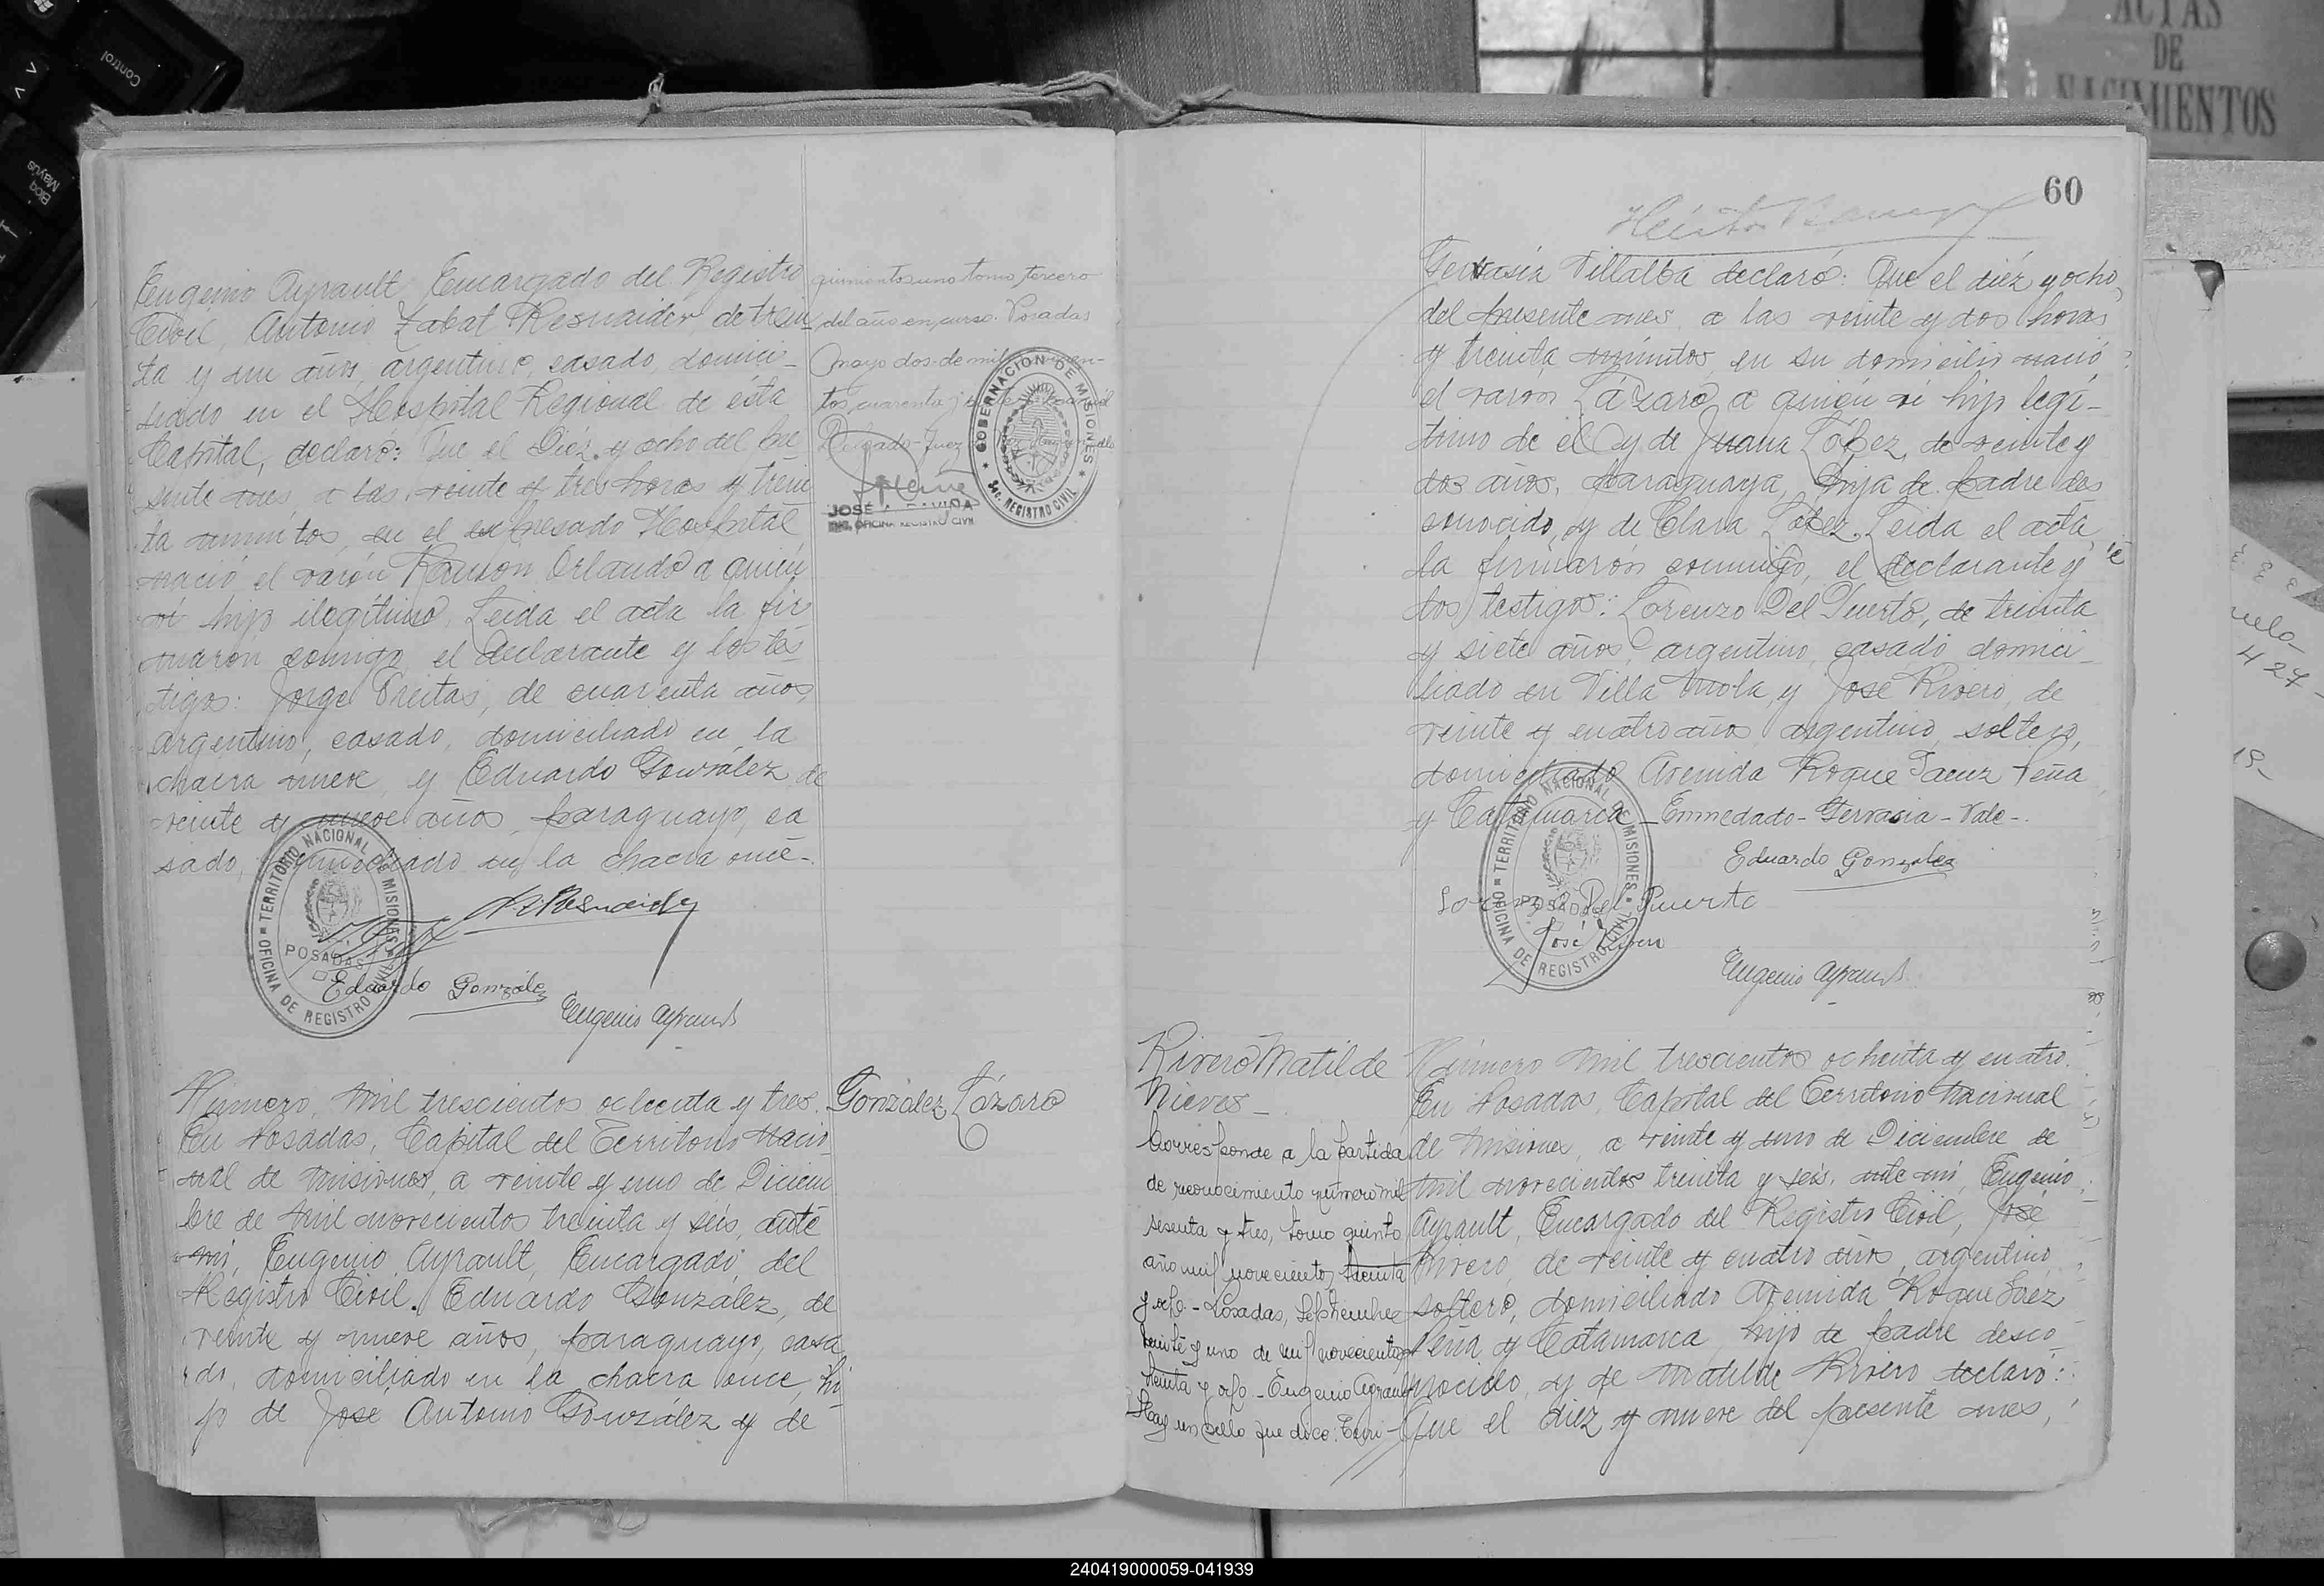 Control
Bloq
Mayús
ACTAS
DE
NACIMIENTOS
60
Eugenio Ayrault, Encargado del Registro
Civil, Antonio Zabat Resnaider, de trein-
ta y un años, argentino, casado, domici-
liado en el Hospital Regional de ésta
Capital, declaró: Que el Diéz y ocho del pre
sente mes, a las veinte y tres horas y trein
ta minutos, en el expresado Hospital
nació el varón Ramón Orlando a quién
vi hijo ilegítimo. Leida el acta la fir
maron comigo, el declarante y los tes
tigos: Jorge Freitas, de cuarenta años,
argentino, casado, domiciliado en la
chacra nueve, y Eduardo González, de
veinte y nueve años, paraguayo, ca
sado, domiciliado en la chacra once-.
quinientos uno tomo tercero
del año en curso. Posadas
Mayo dos de mil
tos cuarenta
Juez
GOBERNACION DE MISIONES
Sec. REGISTRO CIVIL
JOSÉ
OFICINA REGISTRO CIVIL
OFICINA DE REGISTRO CIVIL = TERRITORIO NACIONAL DE MISIONES =
POSADAS
Eduardo González
Eugenio Ayrault
Número, mil trescientos ochenta y tres.
En Posadas, Capital del Territorio Nacio
nal de Misiones, a veinte y uno de Diciem
bre de mil novecientos treinta y seis, ante
mi, Eugenio Ayrault, Encargado del
Registro Civil. Eduardo González, de
veinte y nueve años, paraguayo, casa
do, domiciliado en la chacra once, hi
jo de José Antonio González y de
González Lázaro
Gervasia Villalba declaró: Que el diéz y ocho
del presente mes a las veinte y dos horas
y treinta minutos, en su domicilio nació
el varon Lázaro a quién vi hijo legí-
timo de el y de Juana López, de veinte y
dos años, paraguaya, hija de padre des
conocido, y de Clara López. Leida el acta
la firmarón conmigo, el declarante y
los testigos: Lorenzo Del Puerto, de treinta
y siete años, argentino, casado, domici-
liado en Villa Mola, y José Rivero, de
veinte y cuatro años, argentino, soltero,
domiciliado Avenida Roque Saenz Peña
y Catamarca - Enmedado - Gervasia - Vale-.
Eduardo González
Lorenzo Del Puerto
José Rivero
Eugenio Ayrault
OFICINA DE REGISTRO CIVIL = TERRITORIO NACIONAL DE MISIONES =
POSADAS
Rivero Matilde
Nieves-
Corresponde a la partida
de reconocimiento número mil
sesenta y tres, tomo quinto
año mil novecientos treinta
y ocho.- Posadas, Septiembre
veinte y uno de mil novecientos
treinta y ocho.- Eugenio Ayrault
Hay un sello que dice: Terri-
Número mil trescientos ochenta y cuatro.
En Posadas, Capital del Territorio Nacional
de Misiones, a veinte y uno de Diciembre de
mil novecientos treinta y seis, ante mi, Eugenio
Ayrault, Encargado del Registro Civil, José
Rivero, de veinte y cuatro años, argentino,
soltero, domiciliado Avenida Roque Saez
Peña y Catamarca, hijo de padre desco
nocido, y de Matilde Rivero declaró:
Que el diez y nueve del presente mes,
427
240419000059-041939